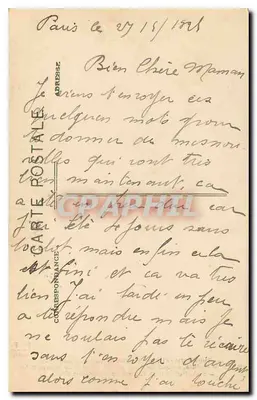 Paris le 27/5/1921
Bien Chère Maman
Je viens t'envoyer ces
quelques mots pour
te donner de mes nou
velles qui vont très
bien maintenant, ca
a été car
j'ai été 8 jours sans
mais enfin cela
est fini et ca va très
bien J'ai tardé un peu
a te répondre mais je
ne voulais pas te récrire
sans t'envoyer d'argent
alors comme j'ai touché
CARTE POSTALE
CORRESPONDANCE
ADRESSE
CARTHAPHILIE